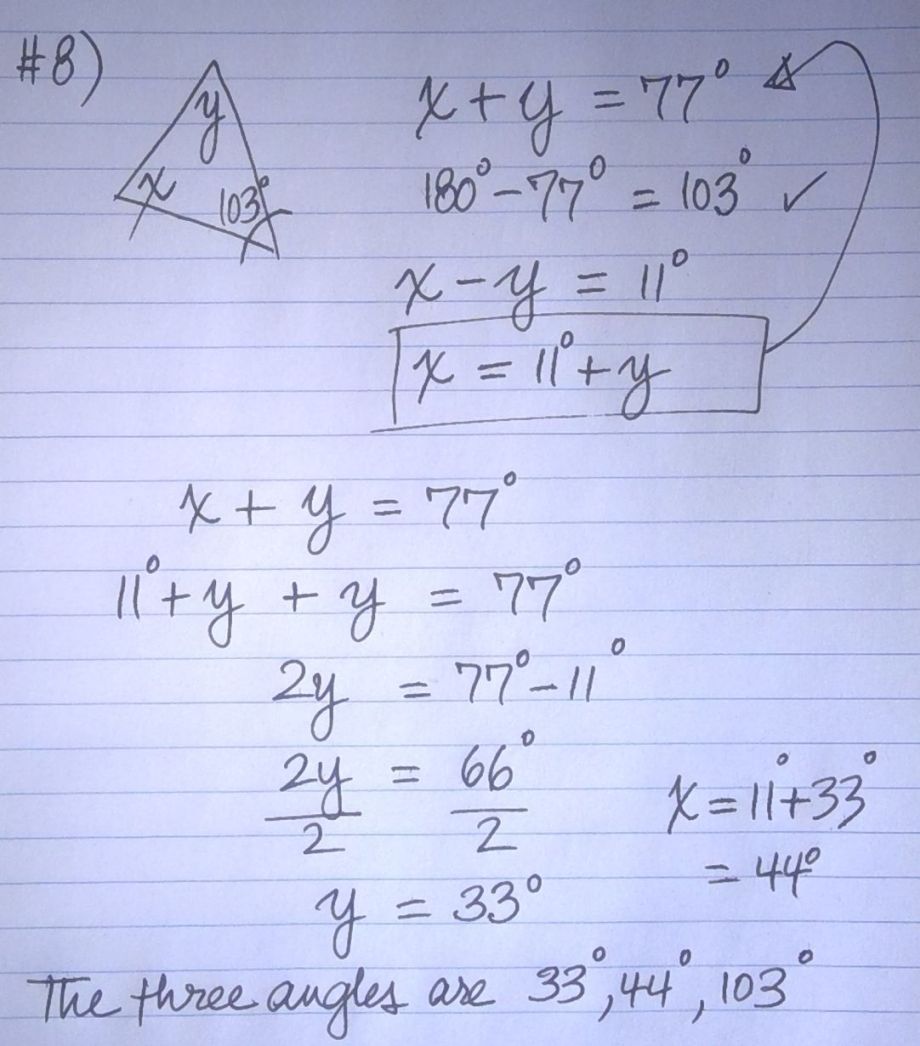 #8)
y
x
103°
x + y = 77°
180° - 77° = 103° ✓
x - y = 11°
x = 11° + y
x + y = 77°
11° + y + y = 77°
2y = 77° - 11°
2y/2 = 66°/2
y = 33°
x = 11° + 33°
= 44°
The three angles are 33°, 44°, 103°